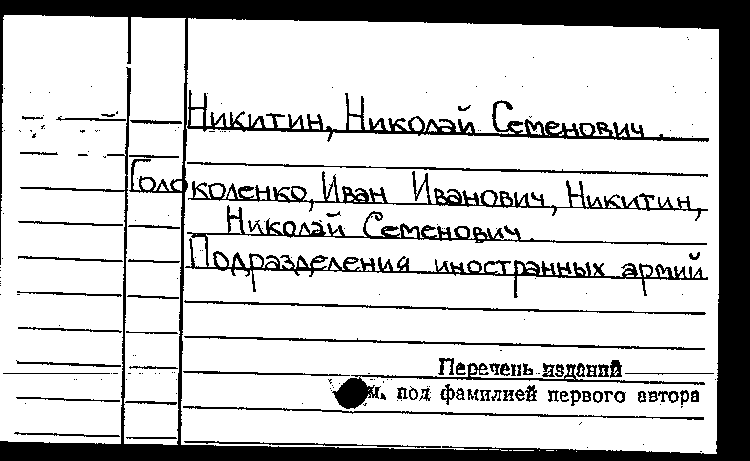 Никитин, Николай Семенович.
Голоколенко, Иван Иванович, Никитин,
Николай Семенович.
Подразделения иностранных армий
Перечень изданий
м. под фамилией первого автора